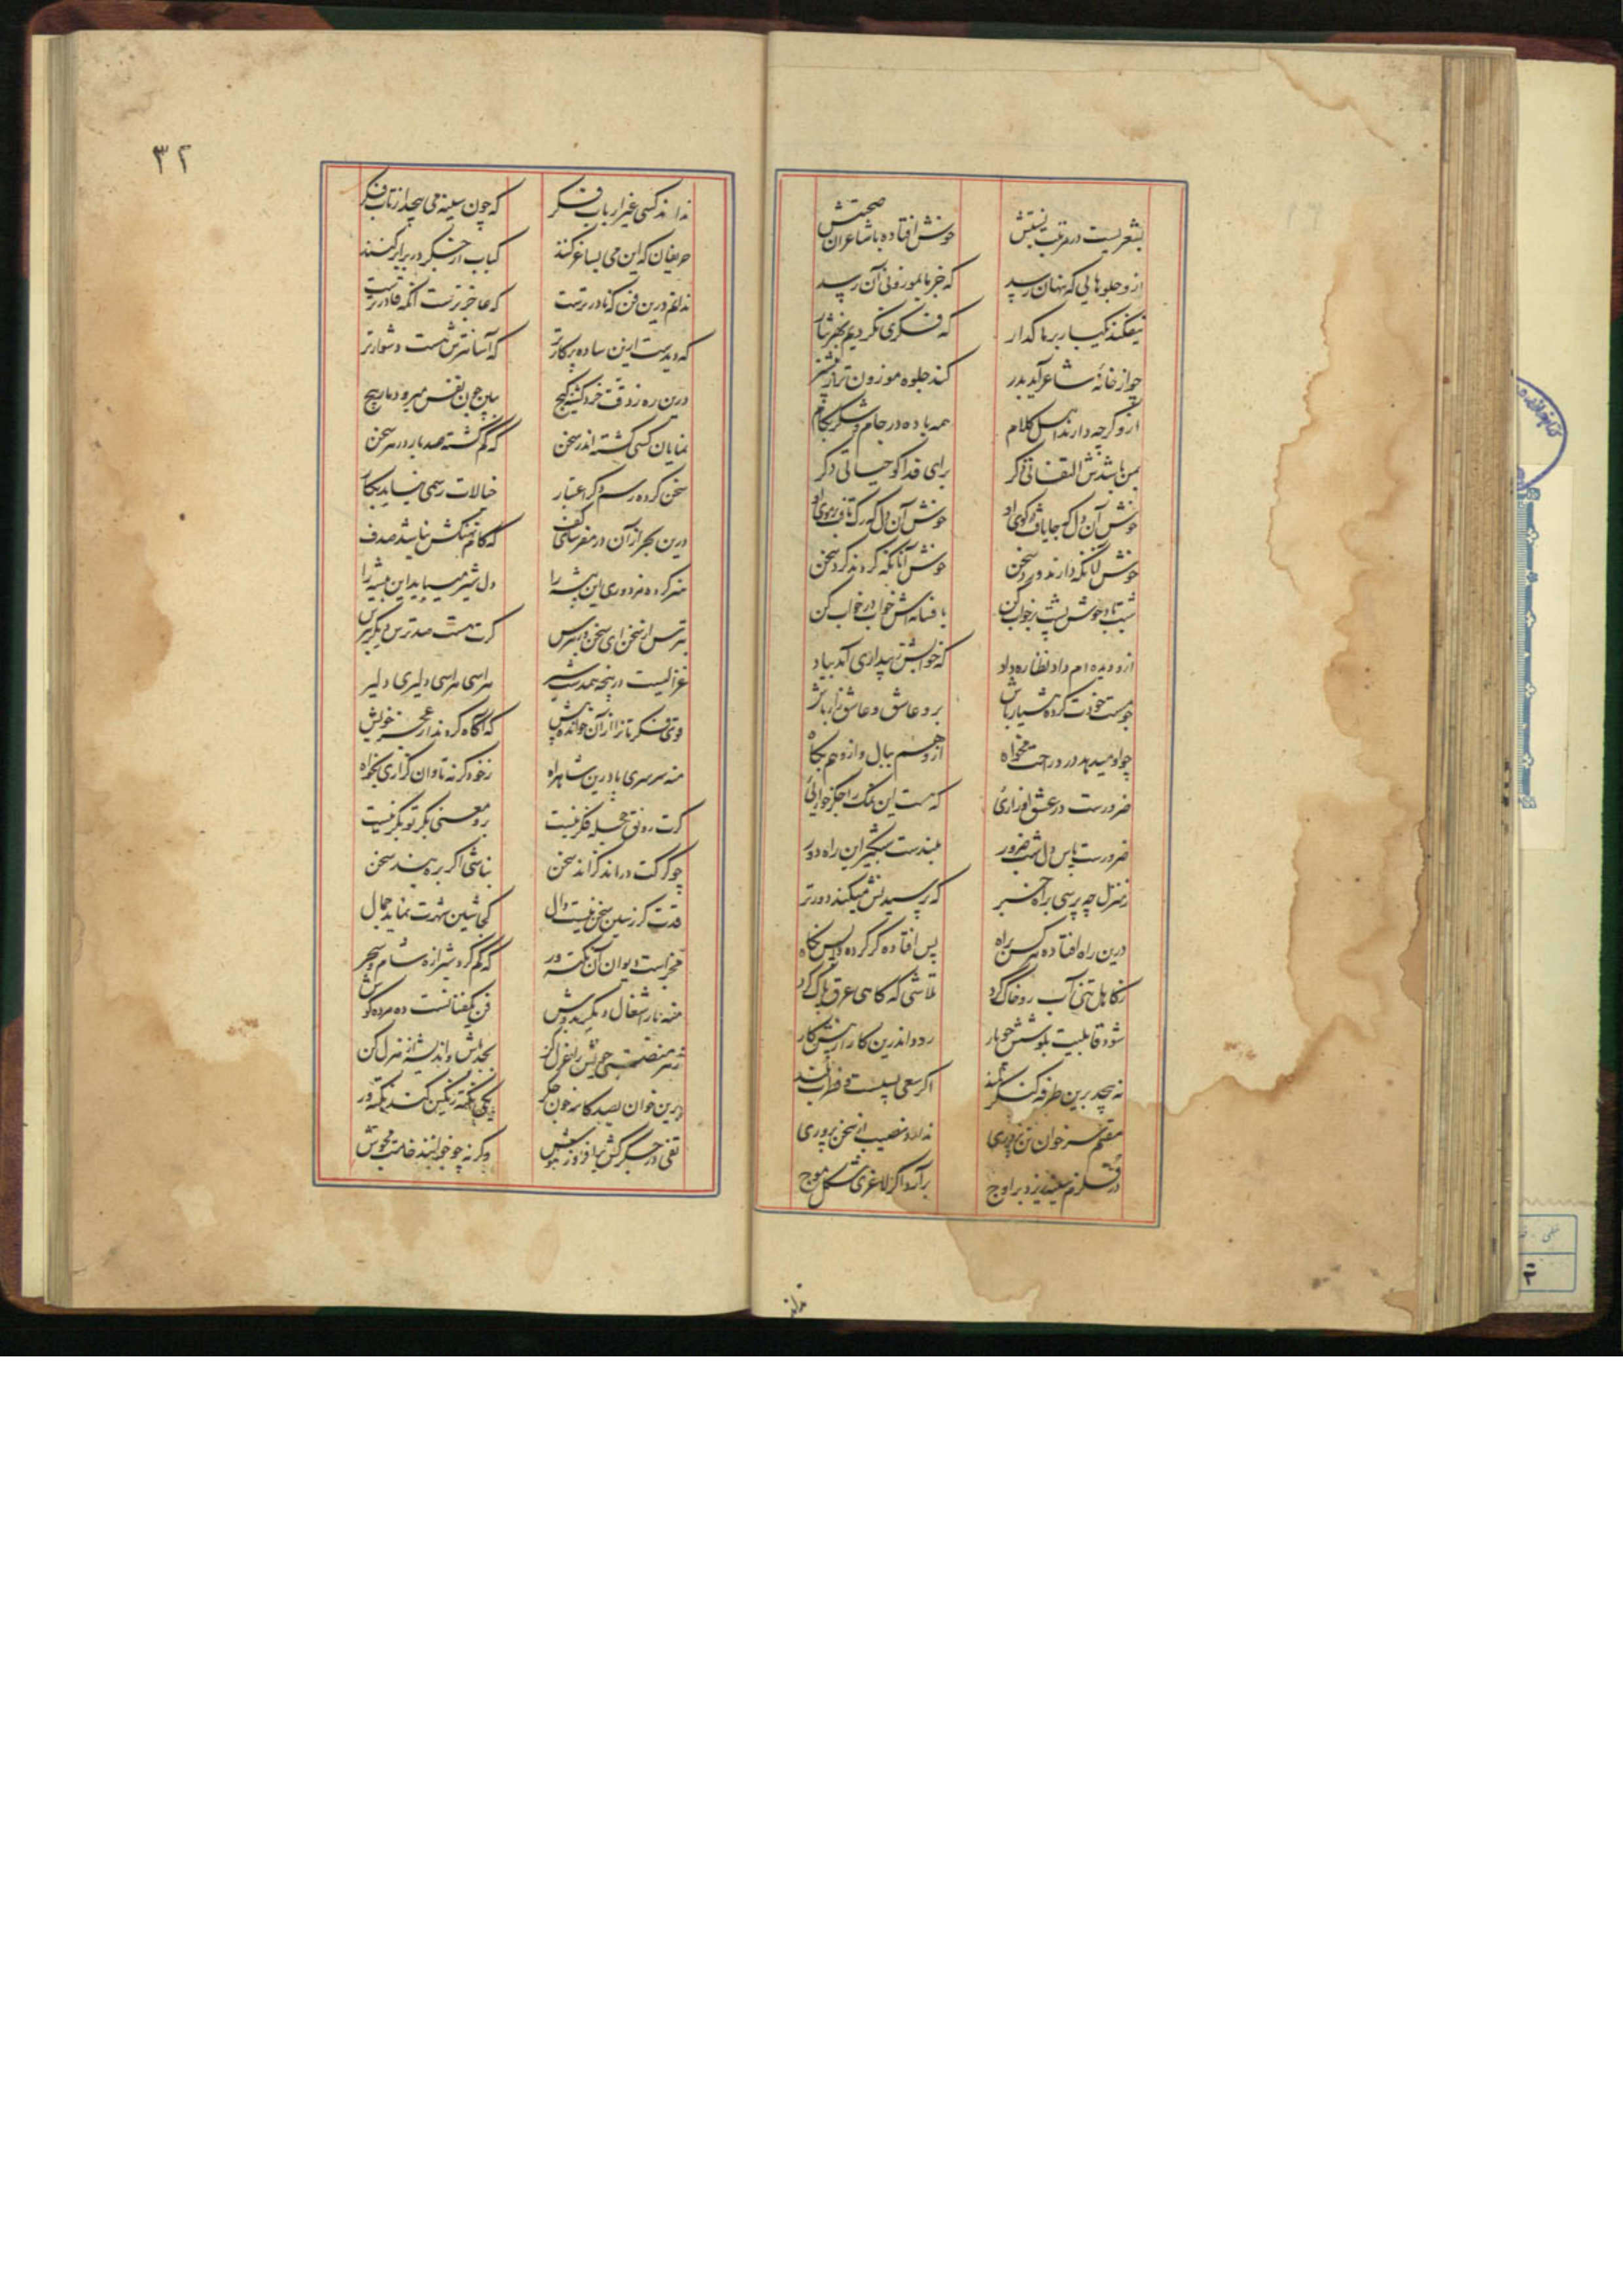 بشعریست در مرتبت نسبتش
خوش افتاده با شاعران صحبتش
ازو جلوهایی که پنهان رسید
که جز ما بموزونی آن رسید
نیفکند یکبار بر ما گذار
که فکری نکردیم بهر نثار
چو از خانهٔ شاعر آید بدر
کند جلوه موزون تر از
ازو گرچه دارند اهل کلام
همه باده در جام و شکر بکام
بمن باشدش التفاتی دگر
برای فدا کو حیاتی دگر
خوش آن دل که جا یافت در کوی او
خوش آن دل که رگ تافت بر موی او
خوش آنانکه دارند ورد سخن
خوش آنانکه گردند گرد سخن
بافسانه‌اش خواب در خواب کن
ازو دیده‌ام داد نظاره داد
که خوابش ز بیداری آید بیاد
چو مست خودت کرده هشیار باش
برو عاشق و عاشق زار باش
چو او میدهد درد راحت مخواه
ازو هم ببال و ازو هم بکاه
ضرورست در عشق او زاریٔ
که هست این ملک را جگرخواریٔ
ضرورست پاس دل شب ضرور
بلندست شبگیر این راه دور
ز منزل چه پرسی براه خبر
که پرسیدنش میکند دورتر
درین راه افتاده هر کس براه
پس افتاده گر کرده واپس نگاه
ز کاهل تنی آب رو خاک گردد
تلاشی که گاهی عرق پاک کرد
شود قابلیت بکوشش چو یار
رود اندرین کار از پیش کار
نه پیچد برین طرفه کنگر کمند
اگر سعی پستست و فطرت بلند
مقیم سر خوان تن پروری
ندارد نصیب از سخن پروری
در قلزم سینه ریزد بر اوج
برآرد اگر لاغری شکل موج
نداند
۳۲
نداند کسی غیر ارباب فکر
که چون سینه می پیچد از تاب فکر
حریفان که این می بساغر کنند
کباب از جگر در برابر کنند
ندانم درین فن که نادرترست
که عاجزترست آنکه قادرترست
که دیدست ازین ساده پرکارتر
که آسانترش هست دشوارتر
درین ره ز دقت خرد گشته گیج
ببین چون نفس میرود مارپیچ
نمایان کسی گشته اندر سخن
که گم گشته صد بار در هر سخن
سخن کرده رسم دگر اعتبار
خیالات رسمی نیاید بکار
درین بحر از آن در مغز سای کف
که کام نهنگش نباشد صدف
هنر کرده مزدوری این پیشه را
دل شیر میباید این بیشه را
بترس از سخن ای سخن ور بترس
گرت هست صد ترس دیگر بترس
غزالیست در پنجه همدست شیر
هراسی هراسی دلیری دلیر
قوی فکرتان را از آن خوانده پیش
که آگاه گردند از عجز خویش
منه سرسری پا درین شاهراه
ز خود گر نه تاوان گزاری نخواه
گرت رونق حجلهٔ فکر نیست
برو معنی بکر تو بکر نیست
چو گر گت دراند گزاند سخن
بناشی اگر بره بیند سخن
قدت گر ز سین سخن نیست دال
کجا شین شهرت نماید جمال
مجزاست دیوان آن نکته ور
که گم کرد شیرازهٔ شام و سحر
منه بار اشغال دیگر بدوش
فن یکفنانست ده مرده کوش
ز سر منصب خویش را عزل کن
بجد باش و اندیشه از هزل کن
درین خوان بصد کاسه خون جگر
یکی نکته رنگین کند نکته ور
تفی در جگر کش بیا در ز جوش
وگرنه چو خوانند خامت مجوش